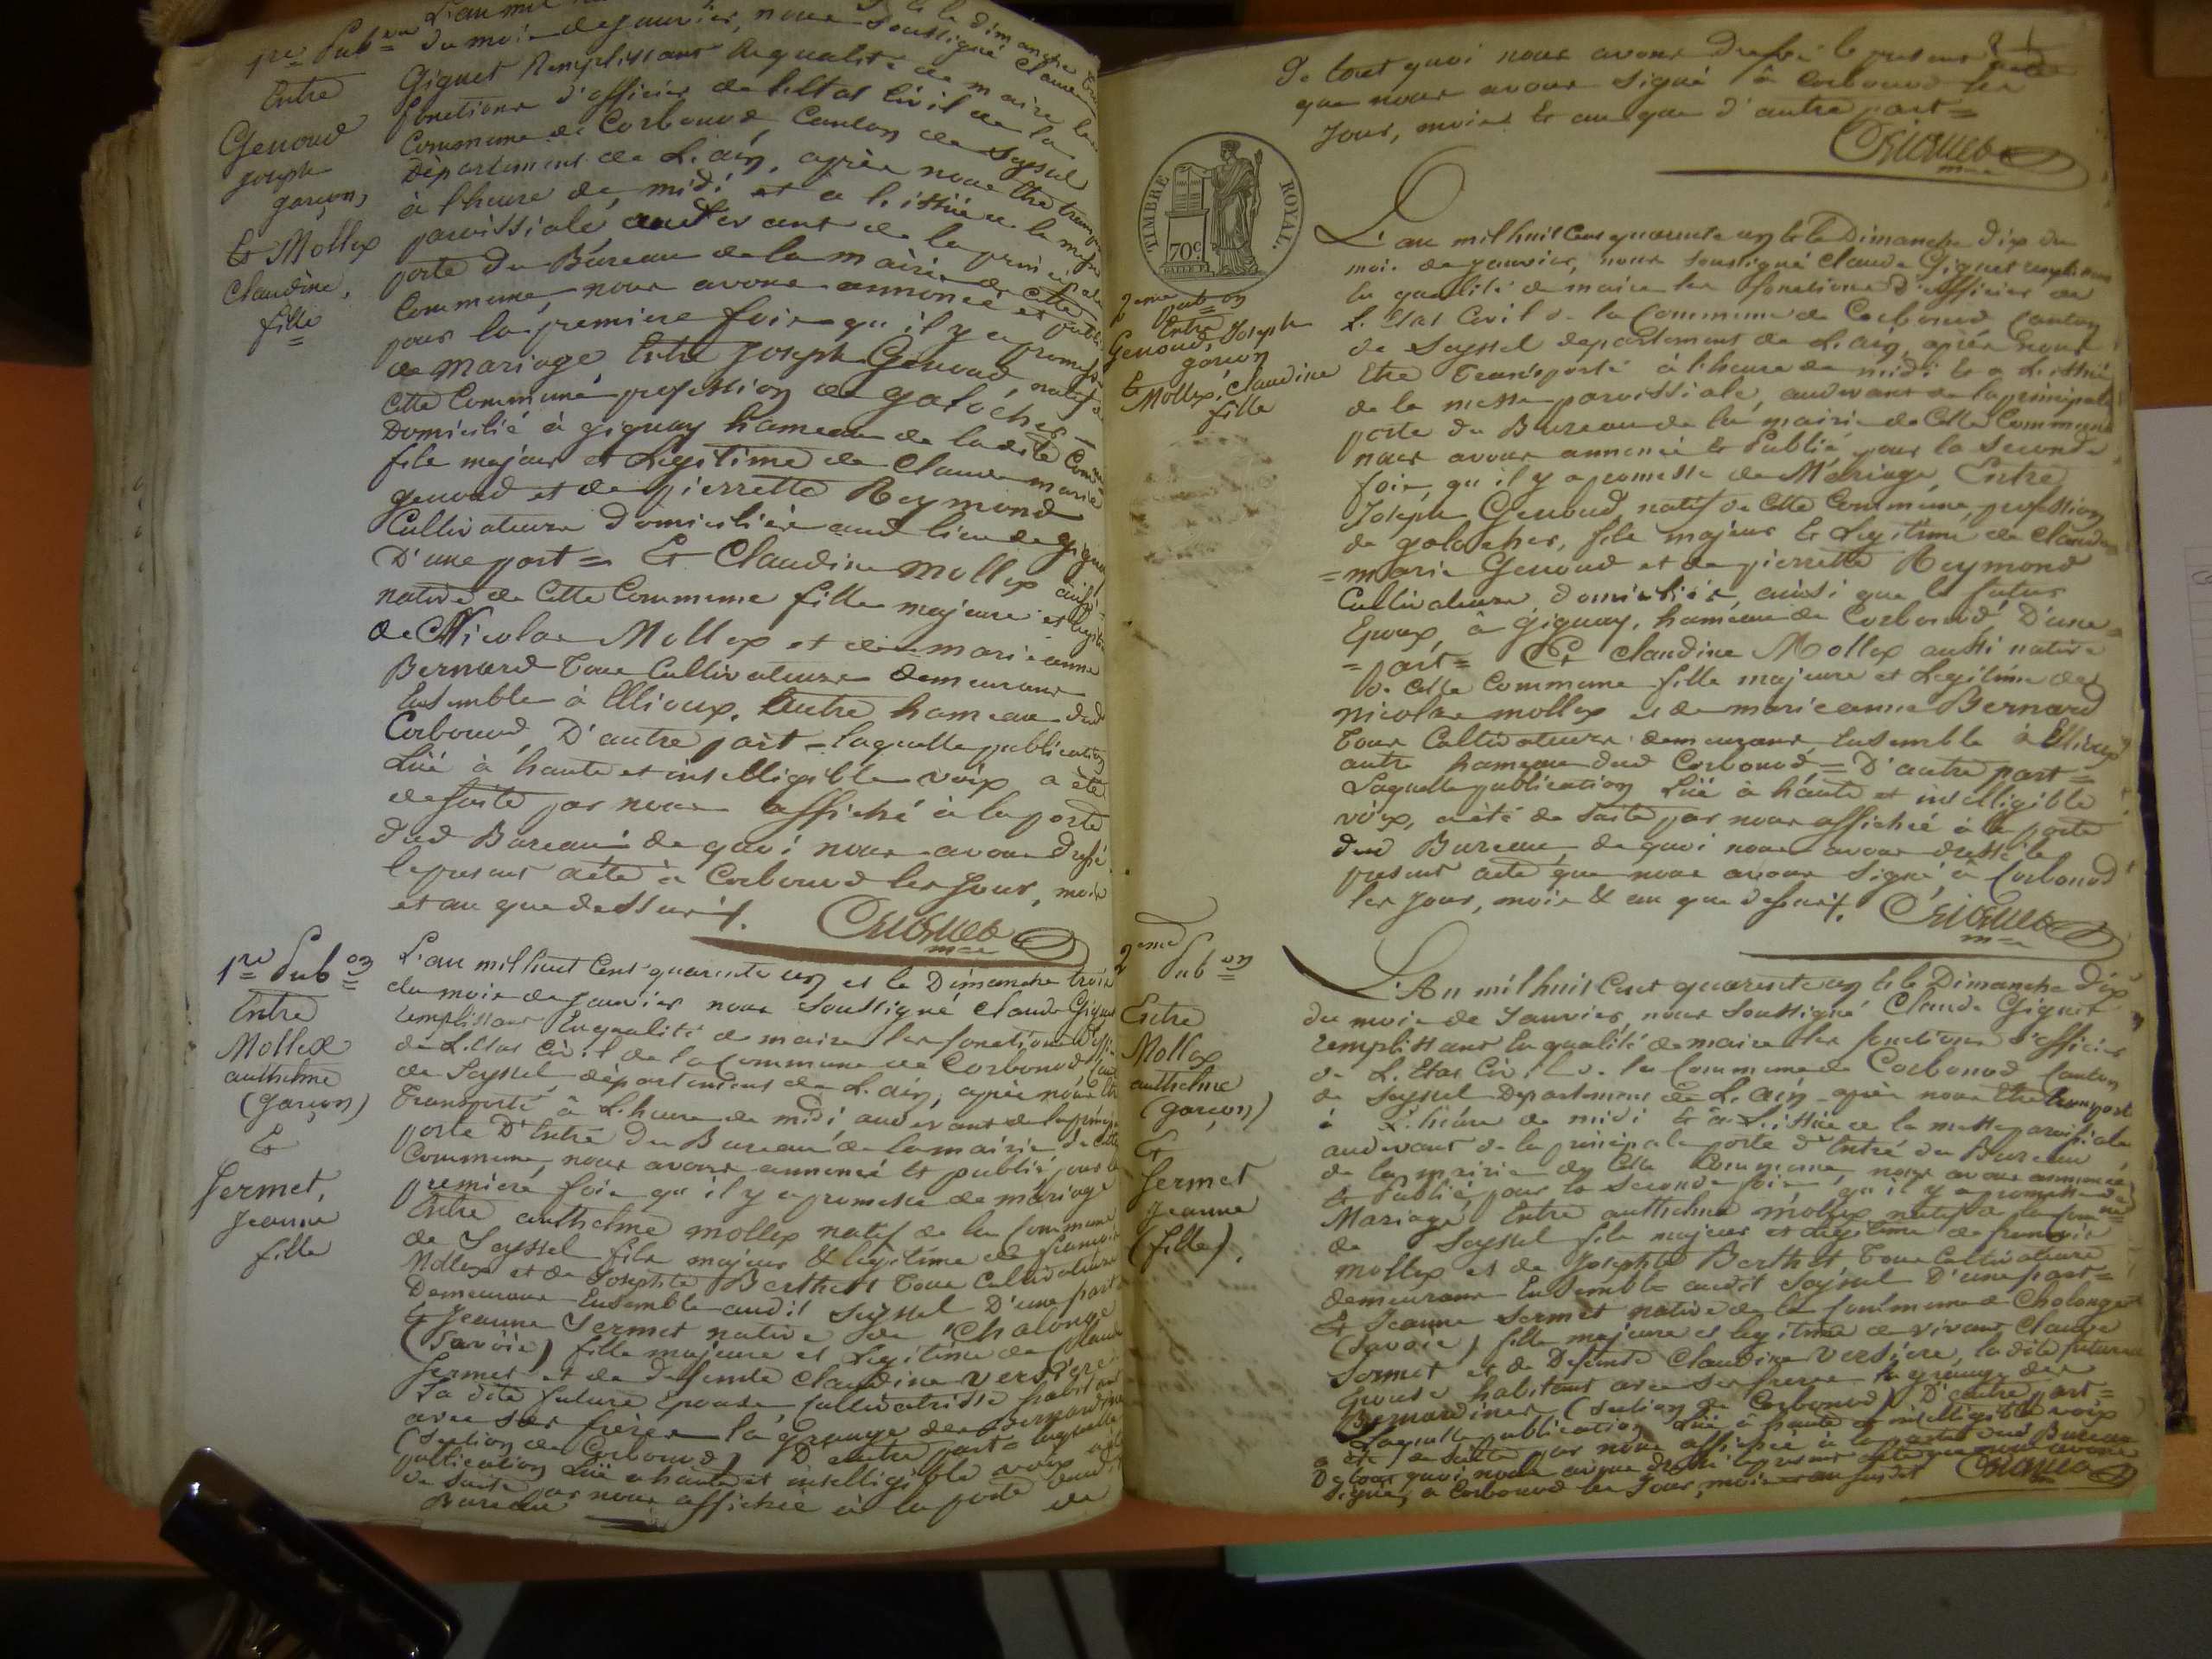 1re Pub on
Entre
Genoud
joseph
garçon,
Et Mollex
Claudine,
fille
du mois de janvier, nous soussigné Claude
Giguet Remplissant la qualité de maire les
fonctions d'officier de l'Etat Civil de la
Commune de Corbonod Canton de Seyssel
Département de L'ain, après nous être transporté
à l'heure de midi et a l'issüe de la messe
paroissiale audevant de la principale
porte du Bureau de la mairie de cette
Commune, nous avons annoncé et publié
pour la première fois qu'il y a promesse
de mariage Entre Joseph Genoud natif de
cette Commune profession de galocher
Domicilié à gignay hameau de ladite Commune
fils majeur et Légitime de Claude marie
genoud et de pierrette Reymond
Cultivateurs Domiciliés aud lieu de gignay
D'une part = Et Claudine mollex aussi
native de Cette Commune fille majeure et légitime
de Nicolas Mollex et de marieanne
Bernard Tous Cultivateurs demeurant
Ensemble à Ellioux, Autre hameau dud
Corbonod, D'autre part - laquelle publication
Lüe à haute et intelligible voix a été
desuite par nous affiché à la porte
dud Bureau de quoi nous avons dressé
le present acte à Corbonod les Jour, mois
et an que dessus ./.
Giguet
m re
1re Pub on
Entre
Mollex
anthelme
(garçon)
Et
Sermet,
jeanne
fille
L'an mil huit Cent quarente un et le Dimanche trois
du mois de janvier nous Soussigné Claude Giguet
remplissant En qualité de maire les fonctions d'officier
de L'Etat Civil de la Commune de Corbonod Canton
de Seyssel, département de L'ain, après nous être
Transporté à L'heure de midi audevant de la principale
porte D'Entré du Bureau de la mairie de Cette
Commune, nous avons annoncé Et publié pour la
première fois qu'il y a promesse de mariage
Entre anthelme mollex natif de la Commune
de Seyssel fils majeur & légitime de francois
Mollex et de Josephte Berthet Tous Cultivateurs
Demeurant Ensemble audit Seyssel D'une part
Et Jeanne Sermet native de Chalonge
(Savoie) fille majeure et Légitime de Claude
Sermet et de Deffunte Claudine Versière
La dite future Epouse Cultivatrisse habitant
avec ses frères la Grange des Bernardines
(Section de Corbonod) D'autre part laquelle
publication Lüe a haute et intelligible voix a été
de suite par nous affichée à la porte dud
Bureau de
De tout quoi nous avons dressé le present acte
que nous avons signé à Corbonod les
Jour, mois & an que d'autre part =
Giguet
m re
TIMBRE ROYAL.
70c
2eme
Entre
Genoud, Joseph
garçon
Et
Mollex, Claudine
fille
L'an mil huit Cent quarente un & le Dimanche dix du
mois de janvier, nous soussigné Claude Giguet remplissant
la qualité de maire les fonctions d'officier de
L'Etat Civil de la Commune de Corbonod Canton
de Seyssel département de L'ain, après nous
Etre Transporté à l'heure de midi & a L'issüe
de la messe paroissiale, audevant de la principale
porte du Bureau de la mairie de Cette Commune
nous avons annoncé & Publié pour la Seconde
fois, qu'il y a promesse de Mariage, Entre
Joseph Genoud, natif de Cette Commune, profession
de galocher, fils majeur & Légitime de Claude
=marie Genoud et de pierrette Reymond
Cultivateurs domiciliés, ainsi que le futur
Epoux, à Gignay, hameau de Corbonod, D'une
=part= Et Claudine Mollex aussi native
de Cette Commune fille majeure et Légitime de
nicolas mollex et de marieanne Bernard
Tous Cultivateurs demeurant, Ensemble à Ellioux
autre hameau dud Corbonod = D'autre part =
Laquelle publication Lüe à haute et intelligible
voix, a été de suite par nous affichée à la porte
dud Bureau, de quoi nous avons dressé le
present acte que nous avons Signé, à Corbonod
les jour, mois & an que dessus ./. Giguet
m re
2eme
Pub on
Entre
Mollex
anthelme
(garçon)
Et
Sermet
Jeanne
(fille).
L'An mil huit Cent quarente un & le Dimanche dix
du mois de Janvier, nous Soussigné Claude Giguet
remplissant la qualité de maire les fonctions d'officier
de L'Etat Civil de la Commune de Corbonod Canton
de Seyssel Département de L'ain, après nous Etre transporté
à L'heure de midi & à L'issüe de la messe paroissiale
audevant de la principale porte d'Entré du Bureau
de la mairie de Cette Commune, nous avons annoncé
& Publié pour la Seconde fois, qu'il y a promesse de
Mariage Entre anthelme mollex natif de la Commune
de Seyssel fils majeur et légitime de francois
mollex et de Josephte Berthet Tous Cultivateurs
demeurant Ensemble audit Seyssel D'une part =
Et Jeanne Sermet native de la Commune de Chalonge
(Savoie) fille majeure et légitime de vivant Claude
Sermet et de Defunte Claudine Versière, la dite future
Epouse habitant avec ses freres la grange des
Bernardines (Section de Corbonod) D'autre part =
Laquelle publication Lüe à haute et intelligible voix
a été de suite par nous affichée à la porte dud Bureau
De tout quoi nous avons dressé le present acte que nous avons
Signé, a Corbonod les Jour, mois et an susdit Giguet